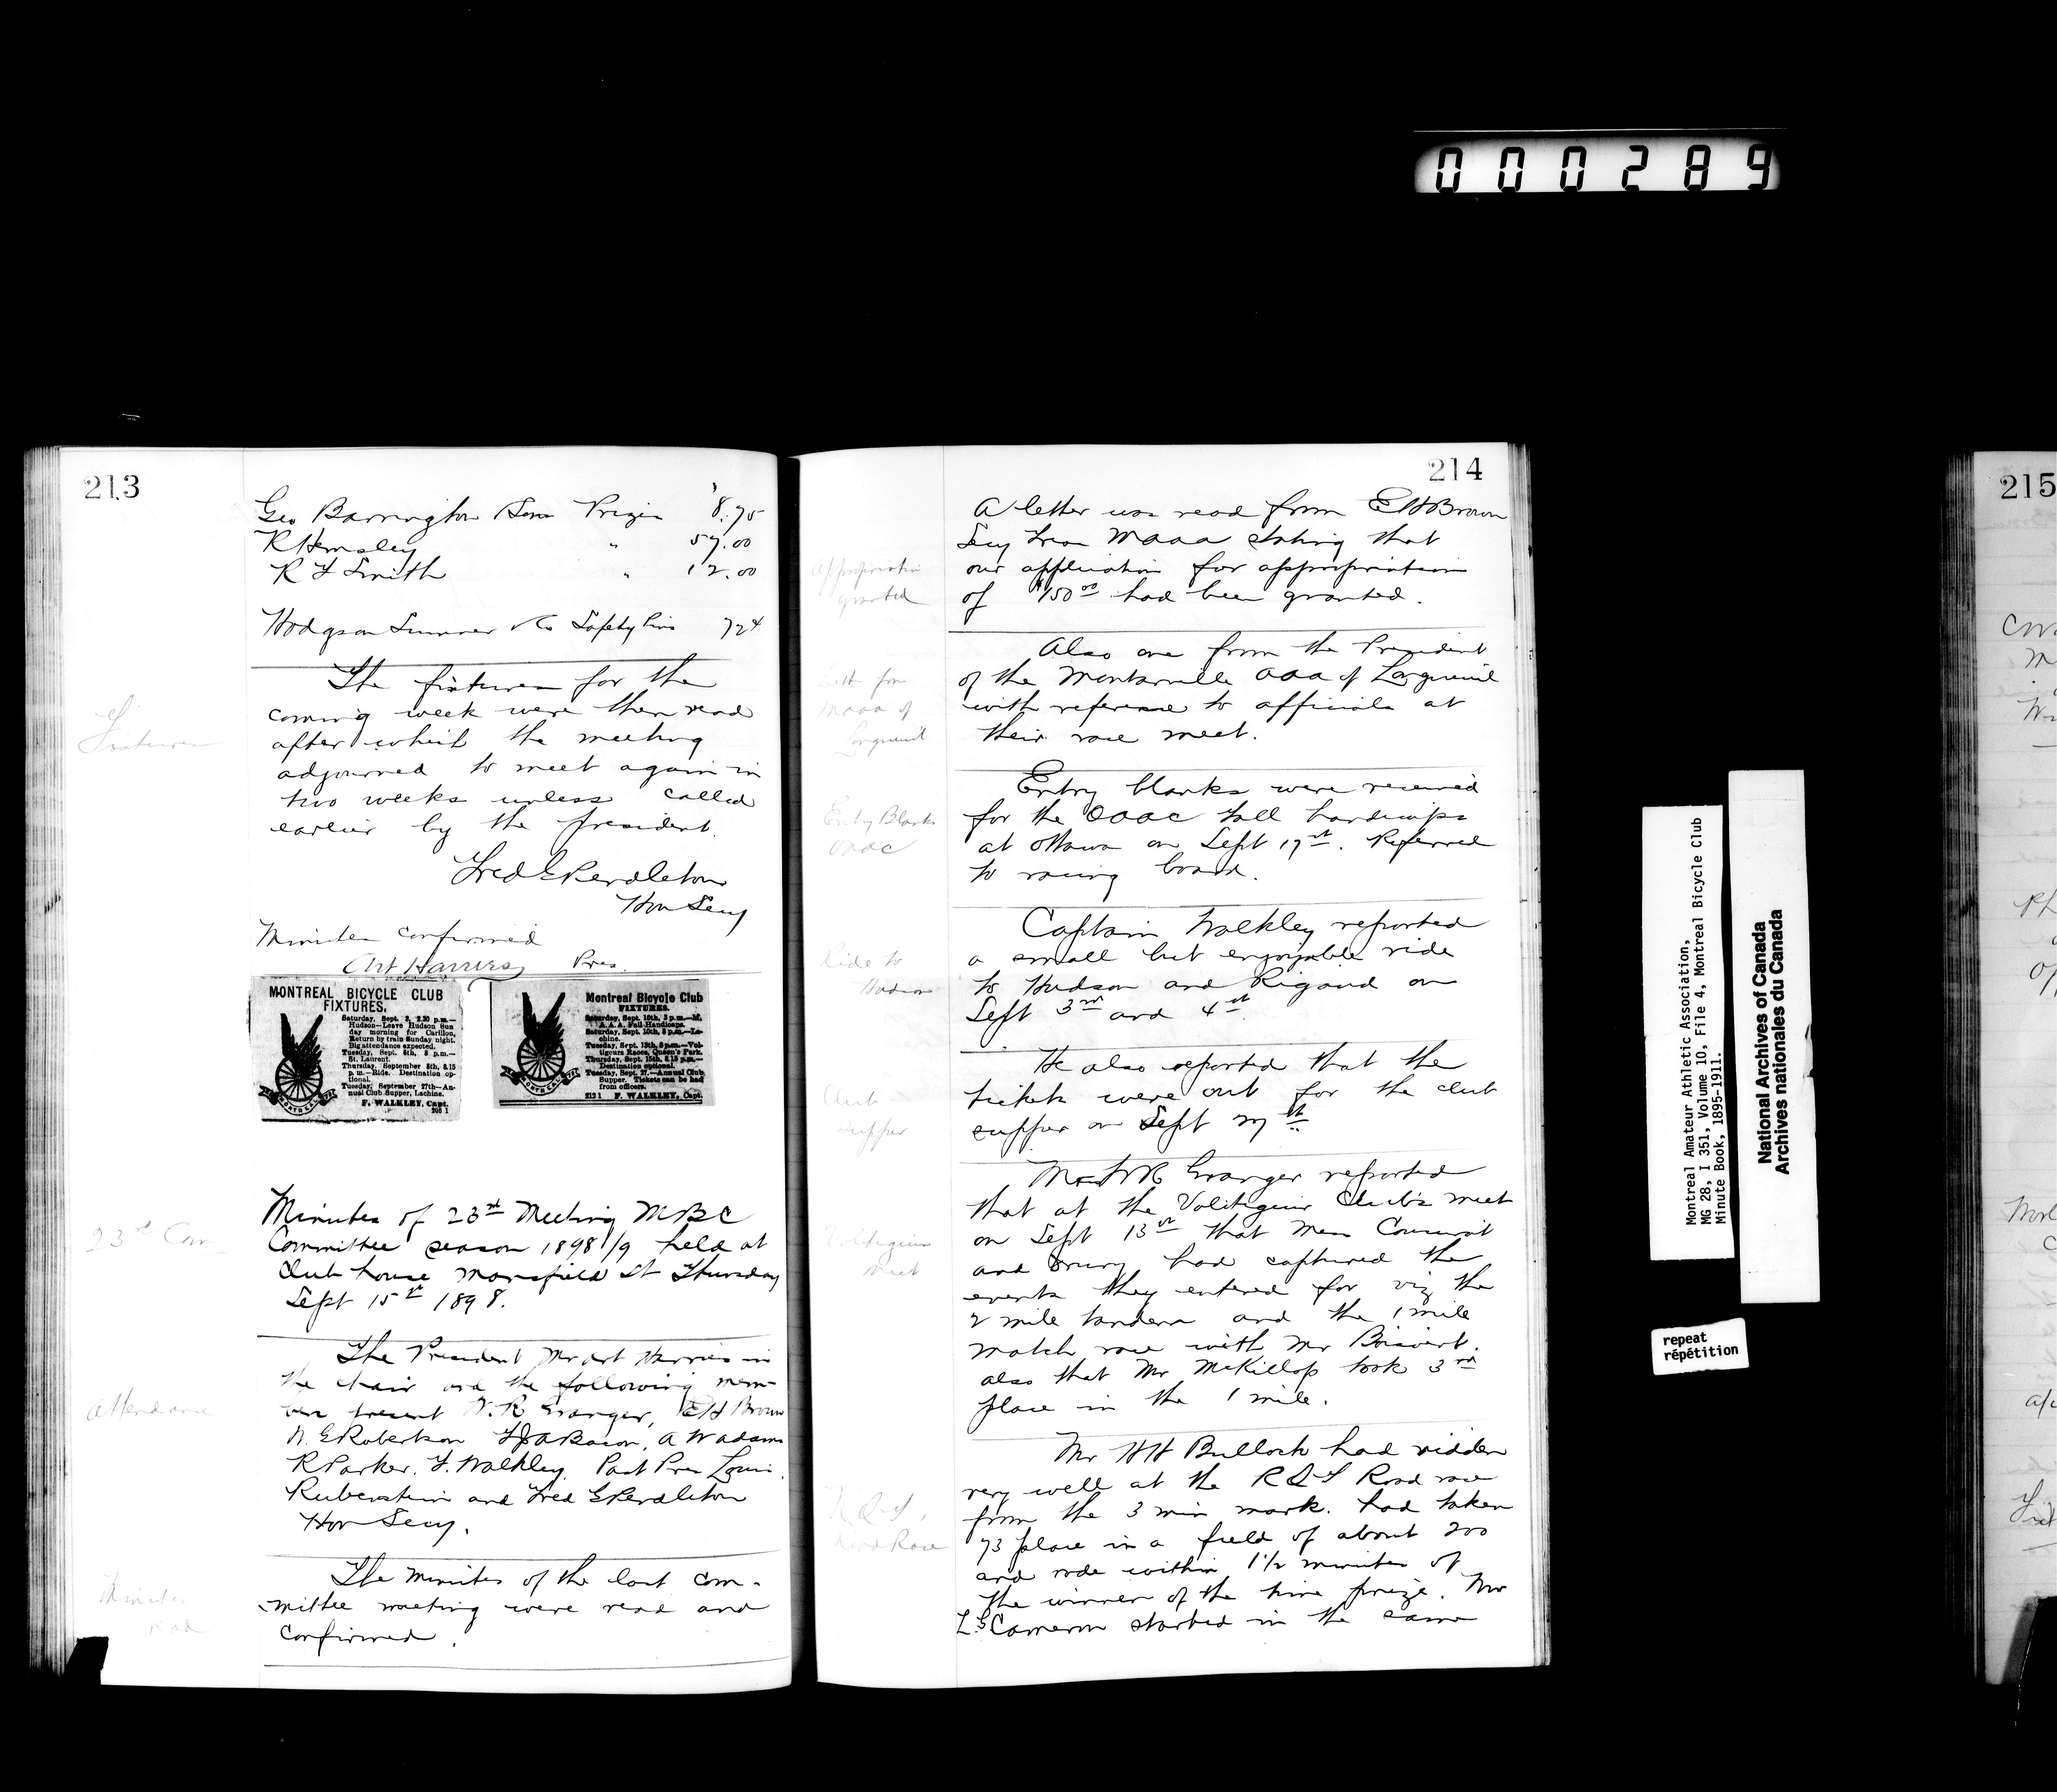 000289
213
Geo Barrington Sons Prizes $8.75
R Hemsley " 57.00
R F Smith " 12.00
Hodgson Sumner & Co Safety Pins 72¢
Fixtures
The fixtures for the
coming week were then read
after which the meeting
adjourned to meet again in
two weeks unless called
earlier by the president.
Fred G Pendleton
Hon Secy
Minutes confirmed
Art Harries Pres.
MONTREAL BICYCLE CLUB
FIXTURES.
Saturday, Sept. 3, 2.30 p.m.—
Hudson—Leave Hudson Sun
day morning for Carillon.
Return by train Sunday night.
Big attendance expected.
Tuesday, Sept. 6th, 8 p.m.—
St. Laurent.
Thursday, September 8th, 8.15
p.m.—Ride. Destination op-
tional.
Tuesday, September 27th—An-
nual Club Supper, Lachine.
F. WALKLEY, Capt.
MONTREAL
Montreal Bicycle Club
FIXTURES.
Saturday, Sept. 10th, 3 p.m.—M.
A.A.A. Fall Handicaps.
Saturday, Sept. 10th, 8 p.m.—La-
chine.
Tuesday, Sept. 13th, 8 p.m.—Vol-
tigeurs Races, Queen's Park.
Thursday, Sept. 15th, 8.15 p.m.—
Destination optional.
Tuesday, Sept. 27.—Annual Club
Supper. Tickets can be had
from officers.
212 1 F. WALKLEY, Capt.
MONTREAL
23rd Com
Minutes of 23rd Meeting MBC
Committee season 1898/9 held at
Club house Mansfield St Thursday
Sept 15th 1898.
Attendance
The President Mr Art Harries in
the chair and the following mem-
bers present W. R Granger, E H Brown
N. G Robertson F J A Bacon, A W Adams
R Parker, F. Walkley, Past Pres Louis
Rubenstein and Fred G Pendleton
Hon Secy.
Minutes
read
The minutes of the last com-
mittee meeting were read and
confirmed.
214
A letter was read from E H Brown
Secy Treas MAAA stating that
Appropriation
granted
our application for appropriation
of $150.00 had been granted.
Letter from
MAAA of
Longueuil
Also one from the President
of the Montarville AAA of Longueuil
with reference to officials at
their race meet.
Entry Blanks
OAAC
Entry blanks were received
for the OAAC fall handicaps
at Ottawa on Sept 17th. Referred
to racing board.
Ride to
Hudson
Captain Walkley reported
a small but enjoyable ride
to Hudson and Rigaud on
Sept 3rd and 4th
Club
Supper
He also reported that the
tickets were out for the club
supper on Sept 27th
Mr W R Granger reported
that at the Voltigeur Club's meet
Voltigeur
meet
on Sept 13th that Mess
and Drury had captured the
events they entered for viz the
2 mile tandem and the 1 mile
match race with Mr Boisvert.
also that Mr McKillop took 3rd
place in the 1 mile.
Road Race
Mr H H Bulloch had ridden
very well at the R Q S Road race
from the 3 min mark. had taken
73 place in a field of about 200
and rode within 1½ minutes of
the winner of the time prize. Mr
L S Cameron started in the same
Montreal Amateur Athletic Association,
MG 28, I 351, Volume 10, File 4, Montreal Bicycle Club
Minute Book, 1895-1911.
National Archives of Canada
Archives nationales du Canada
repeat
répétition
215